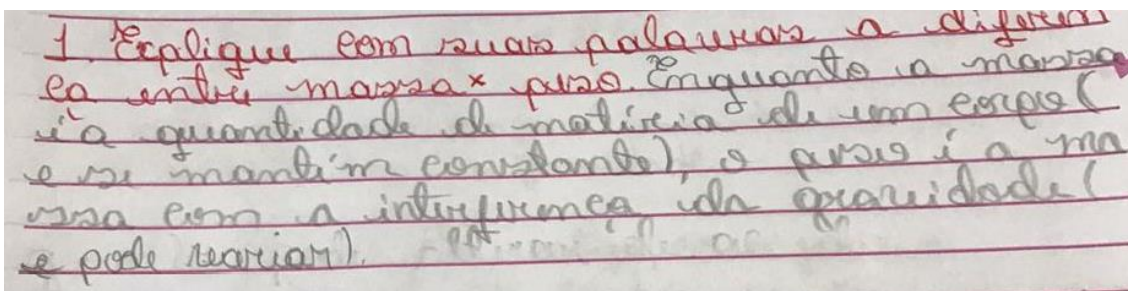 1 Explique com suas palavras a diferen
ça entre massa x peso. Enquanto a massa
é a quantidade de matéria de um corpo (
e se mantém constante), o peso é a ma
ssa com a interferença da gravidade (
e pode variar).